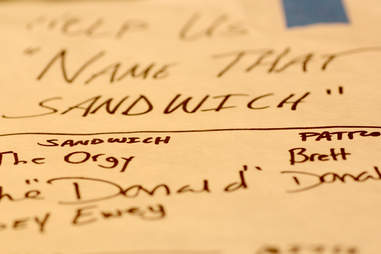 HELP US
"NAME THAT
SANDWICH"
SANDWICH PATRO
The Orgy Brett
The "Donald" Donal
EWEY